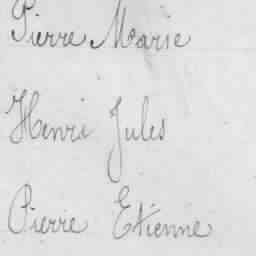 Pierre Marie
Henri Jules
Pierre Etienne